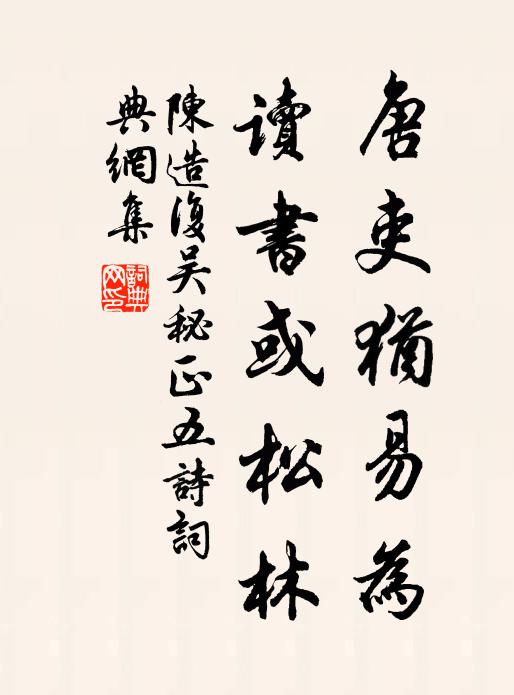 唐吏猶易為
讀書或松林
陳造復吳秘正五詩詞
典網集
詞典網印